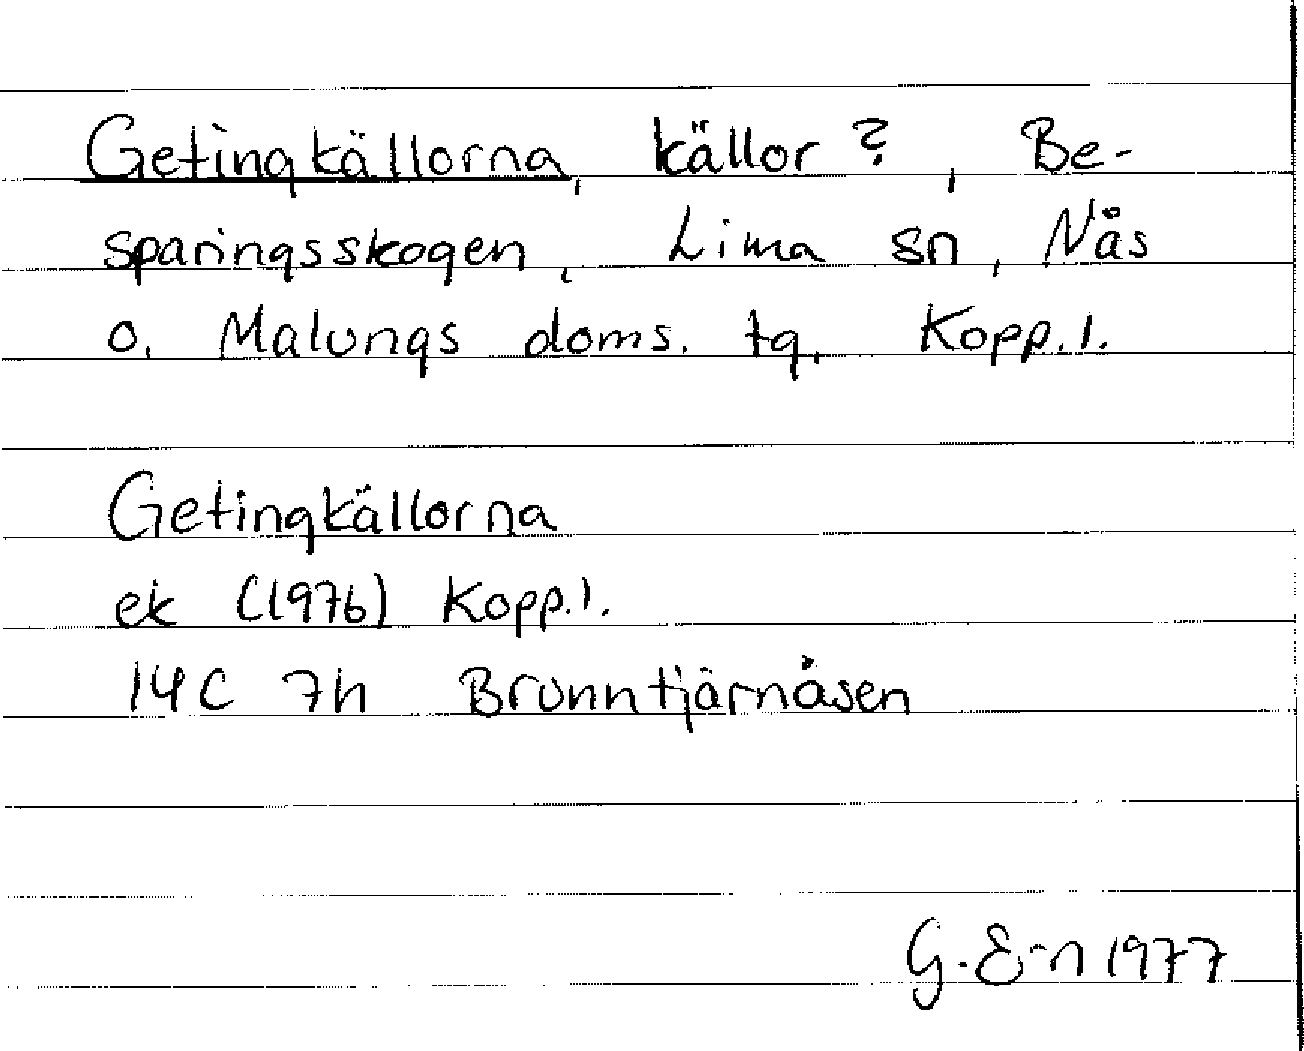 Getingkällorna, källor?, Be-
sparingsskogen, Lima sn, Nås
o. Malungs doms. tg. Kopp. l.
Getingkällorna
ek (1976) Kopp. l.
14C 7h Brunntjärnåsen
G. E-n 1977